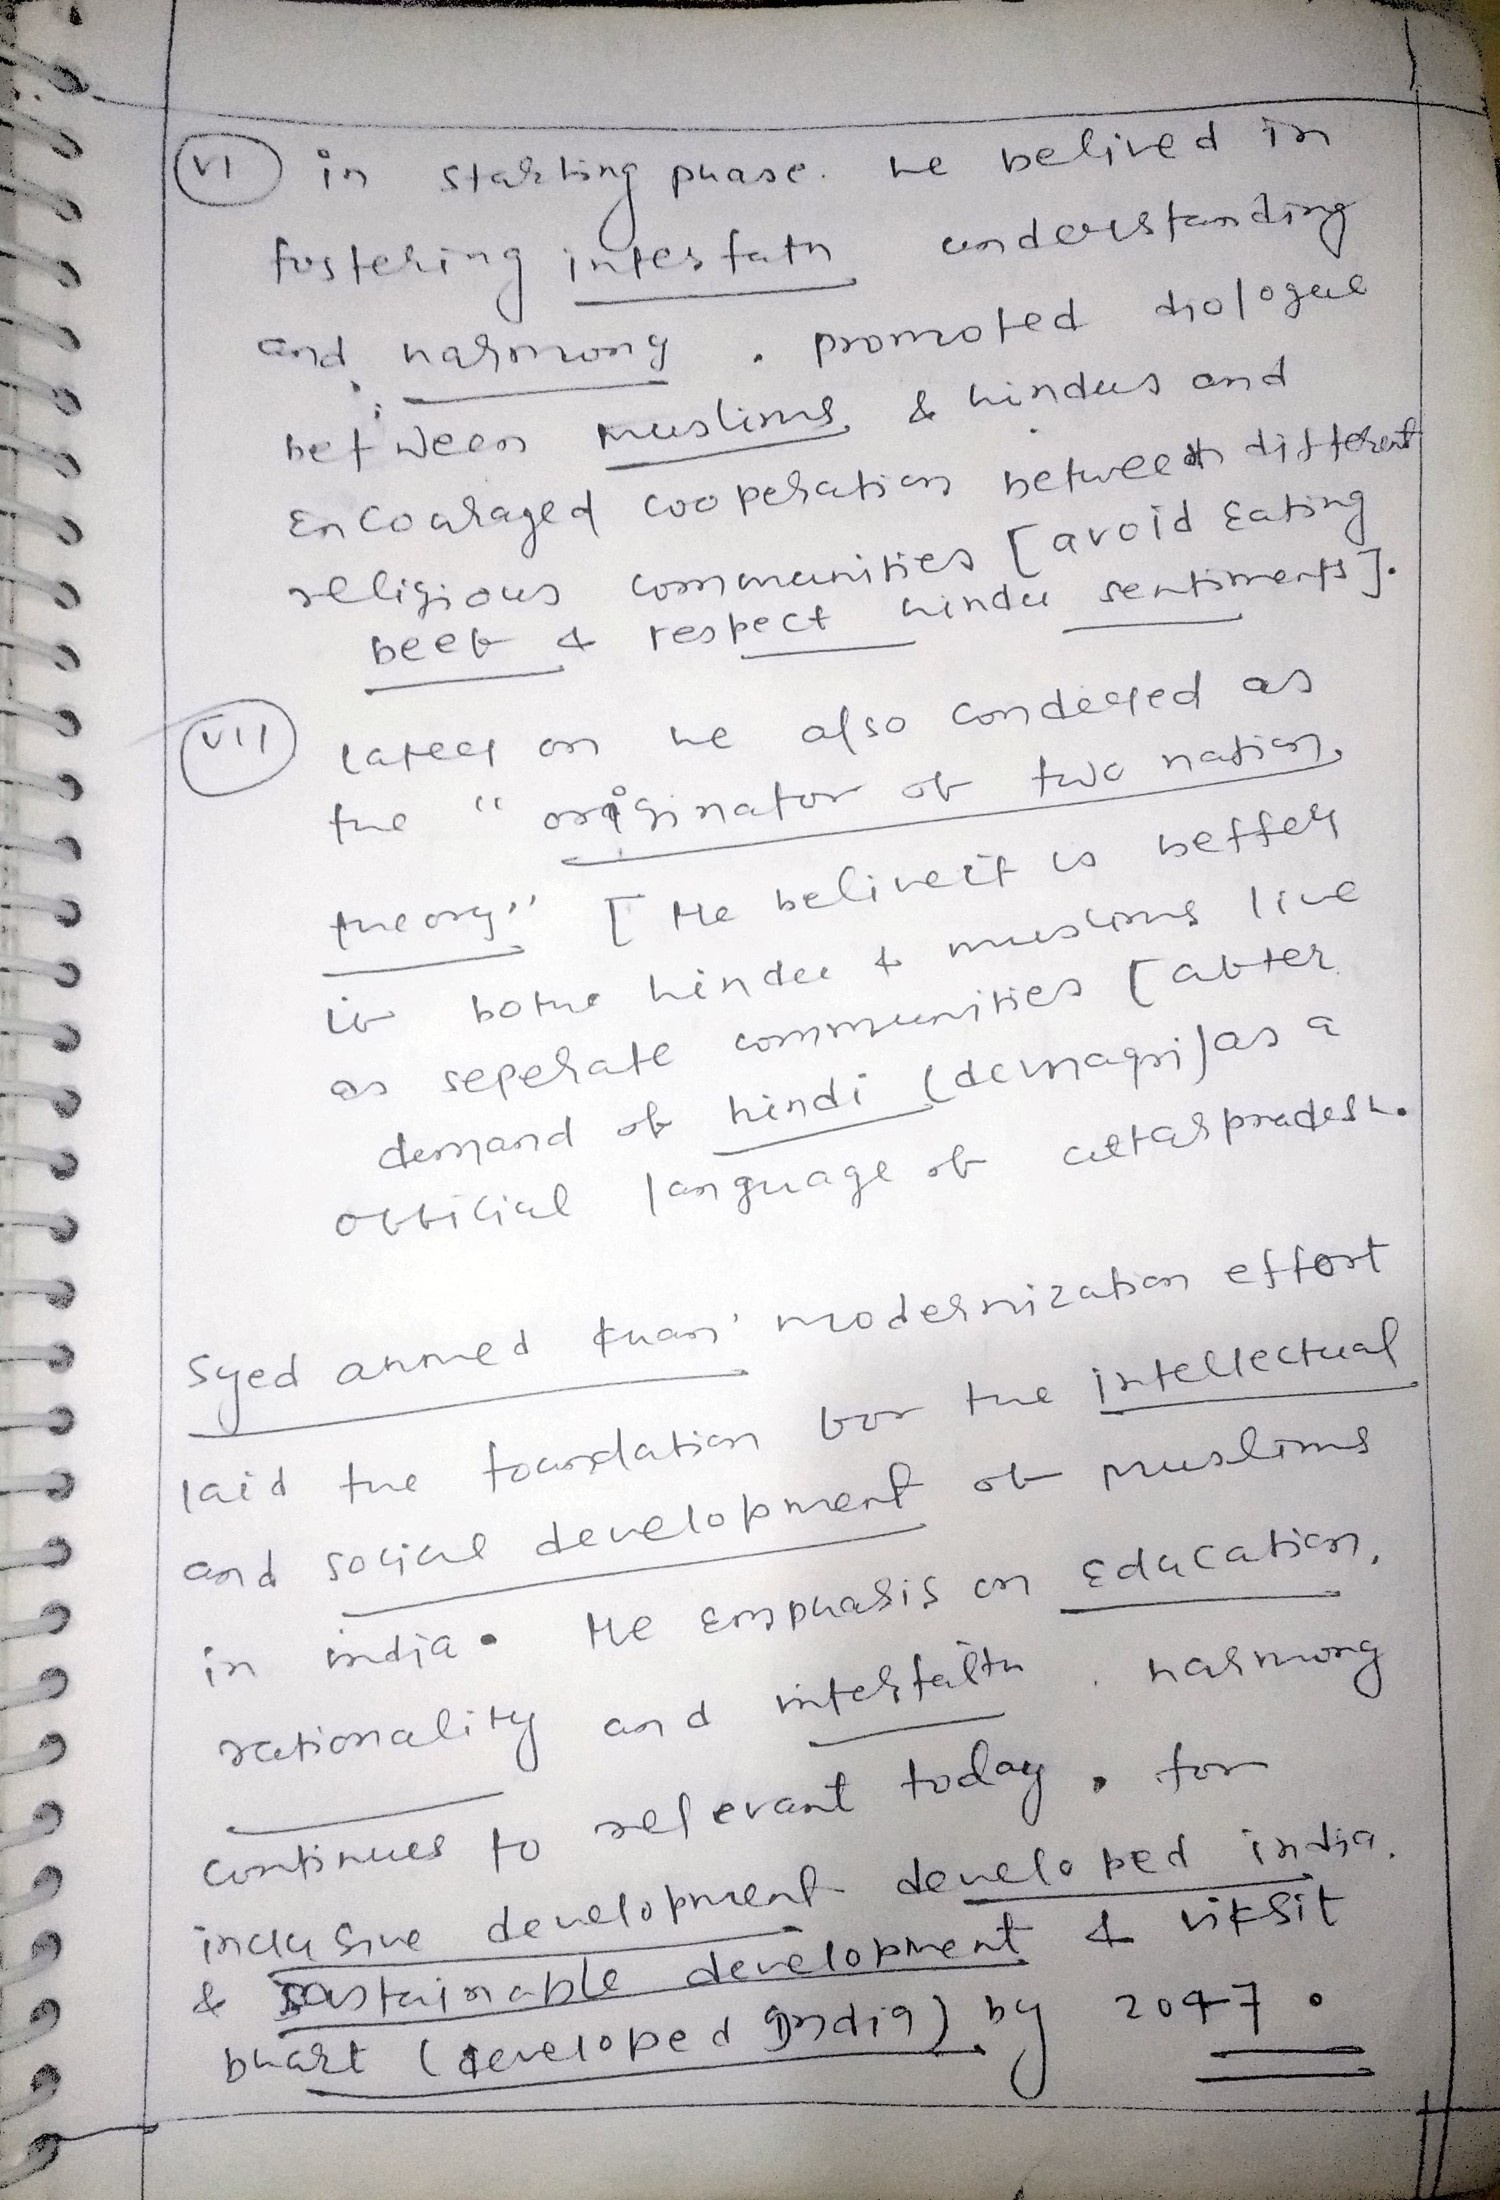 (VI) in starting phase. he belived in
fostering interfath understanding
and harmony . promoted diologue
between muslims & hindus and
Encouraged cooperation between different
religious communities [avoid Eating
beef & respect hindu sentiments].
(VII) later on he also as
the "originator of two nation
theory" [He beliveit is better
if bothe hindu & muslims live
as seperate communities [after
demand of hindi (devnagri) as a
official language of uttarpradesh.
Syed ahmed khan' modernization effort
laid the foundation for the intellectual
and social development of muslims
in india. He Emphasis on Education,
rationality and interfaith . harmony
continues to relevant today . for
inclusive development developed india.
& sustainable development & viksit
bhart (developed India) by 2047.